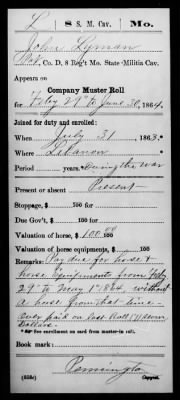 L | 8 S. M. Cav. | Mo.
John Lyman
Pvt., Co. D, 8 Reg't Mo. State Militia Cav.
Appears on
Company Muster Roll
for Feby 29 to June 30, 1864.
Joined for duty and enrolled:
When July 31, 1863.*
Where Lebanon
Period years.* During the war
Present or absent Present
Stoppage, $ 100 for
Due Gov't, $ 100 for
Valuation of horse, $ 100 00/100
Valuation of horse equipments, $ 100
Remarks: Pay due for horse &
horse Equipments from Feby
29" to May 1" 1864, without
a horse from that time
Over paid on last Roll (7) seven
Dollars.
*See enrollment on card from muster-in roll.
Book mark:
Remington
(858c) Copyist.